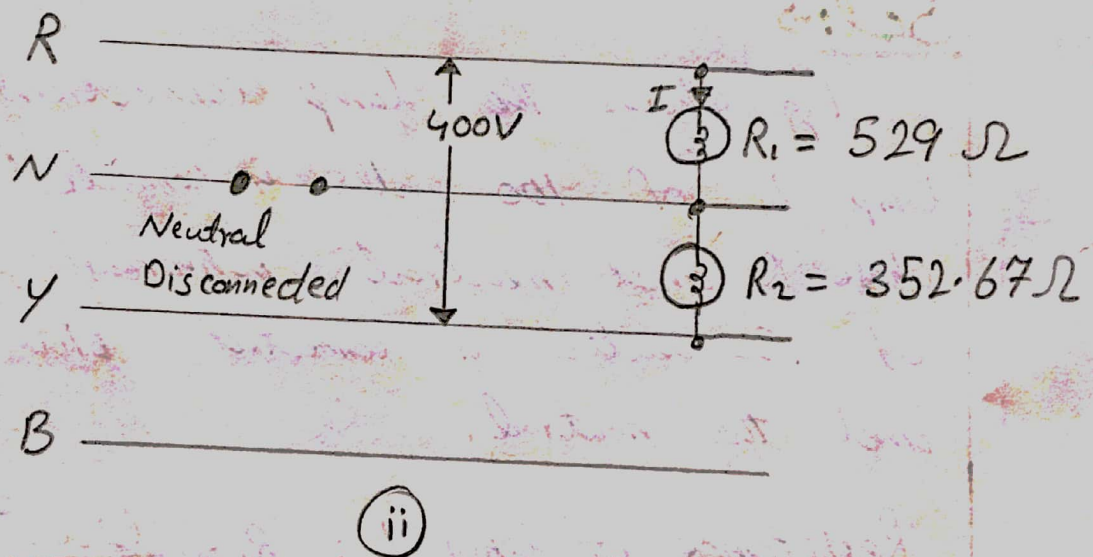 R
400V
I
R₁ = 529 Ω
N
Neutral
Disconnected
R₂ = 352.67Ω
Y
B
ii